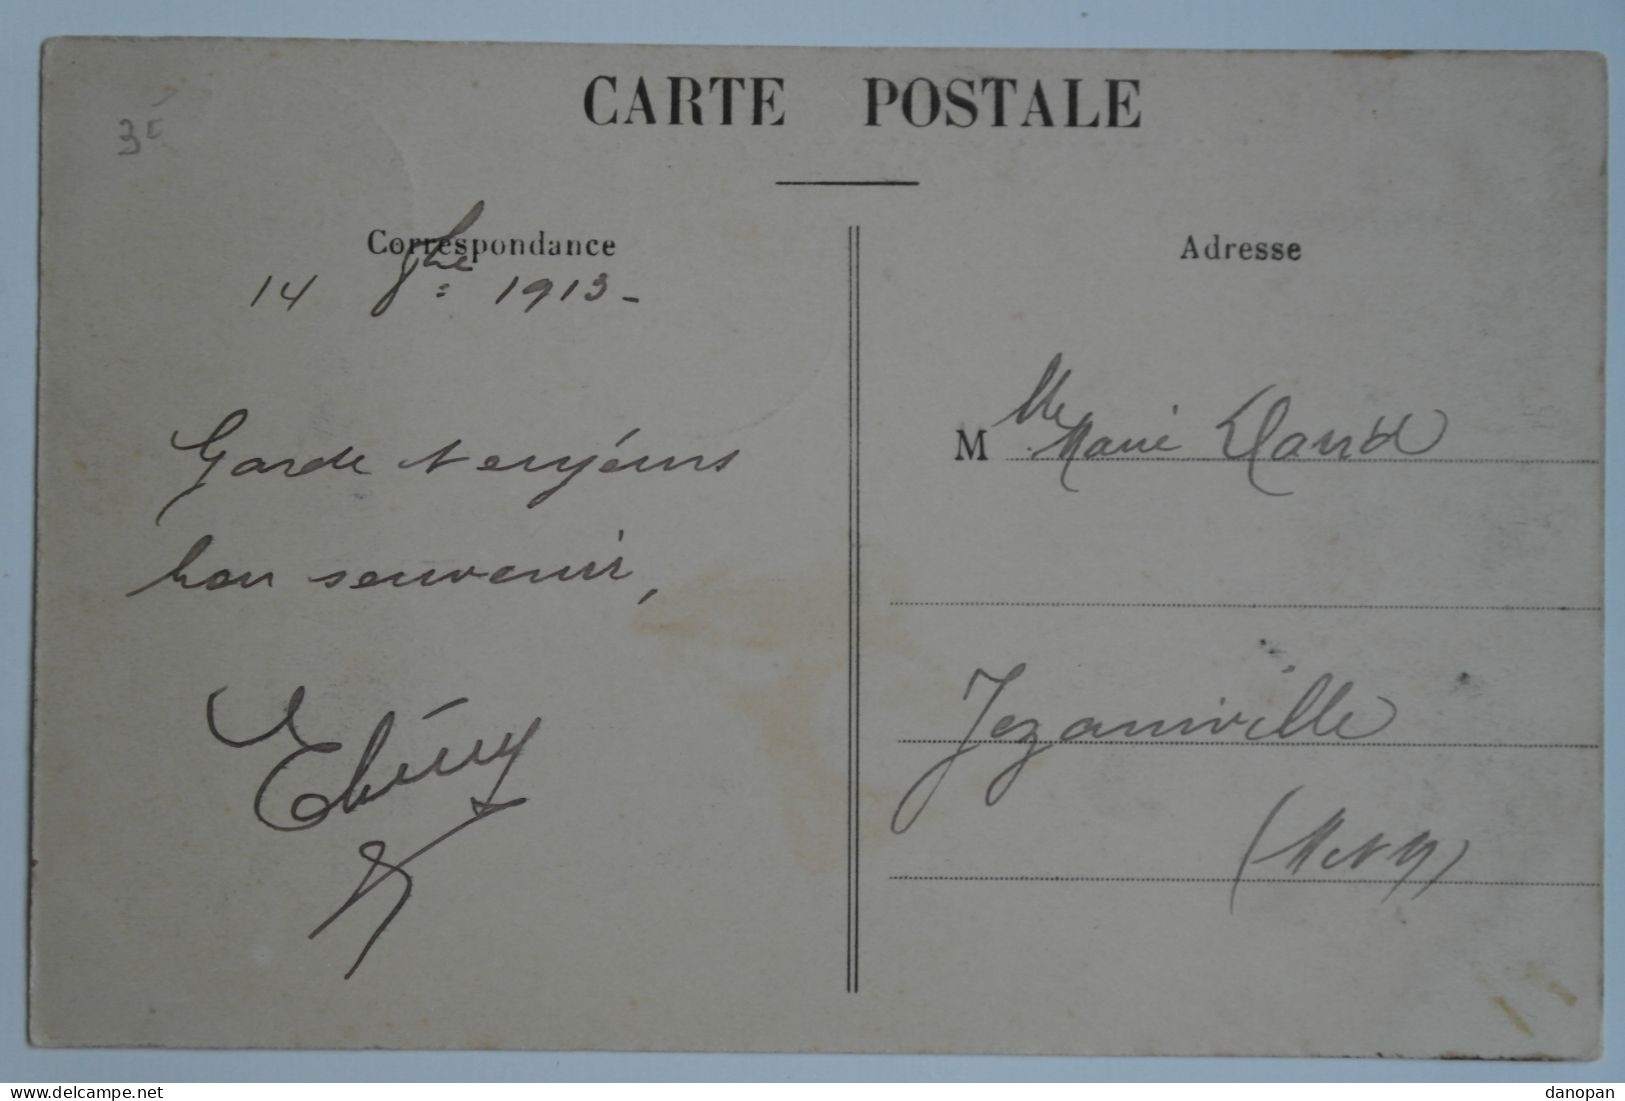 CARTE POSTALE
Correspondance
14 9bre 1913 -
Garde toujours
bon souvenir,
Adresse
M lle Marie David
Jezainville
(M et M)
delcampe.net
danopan